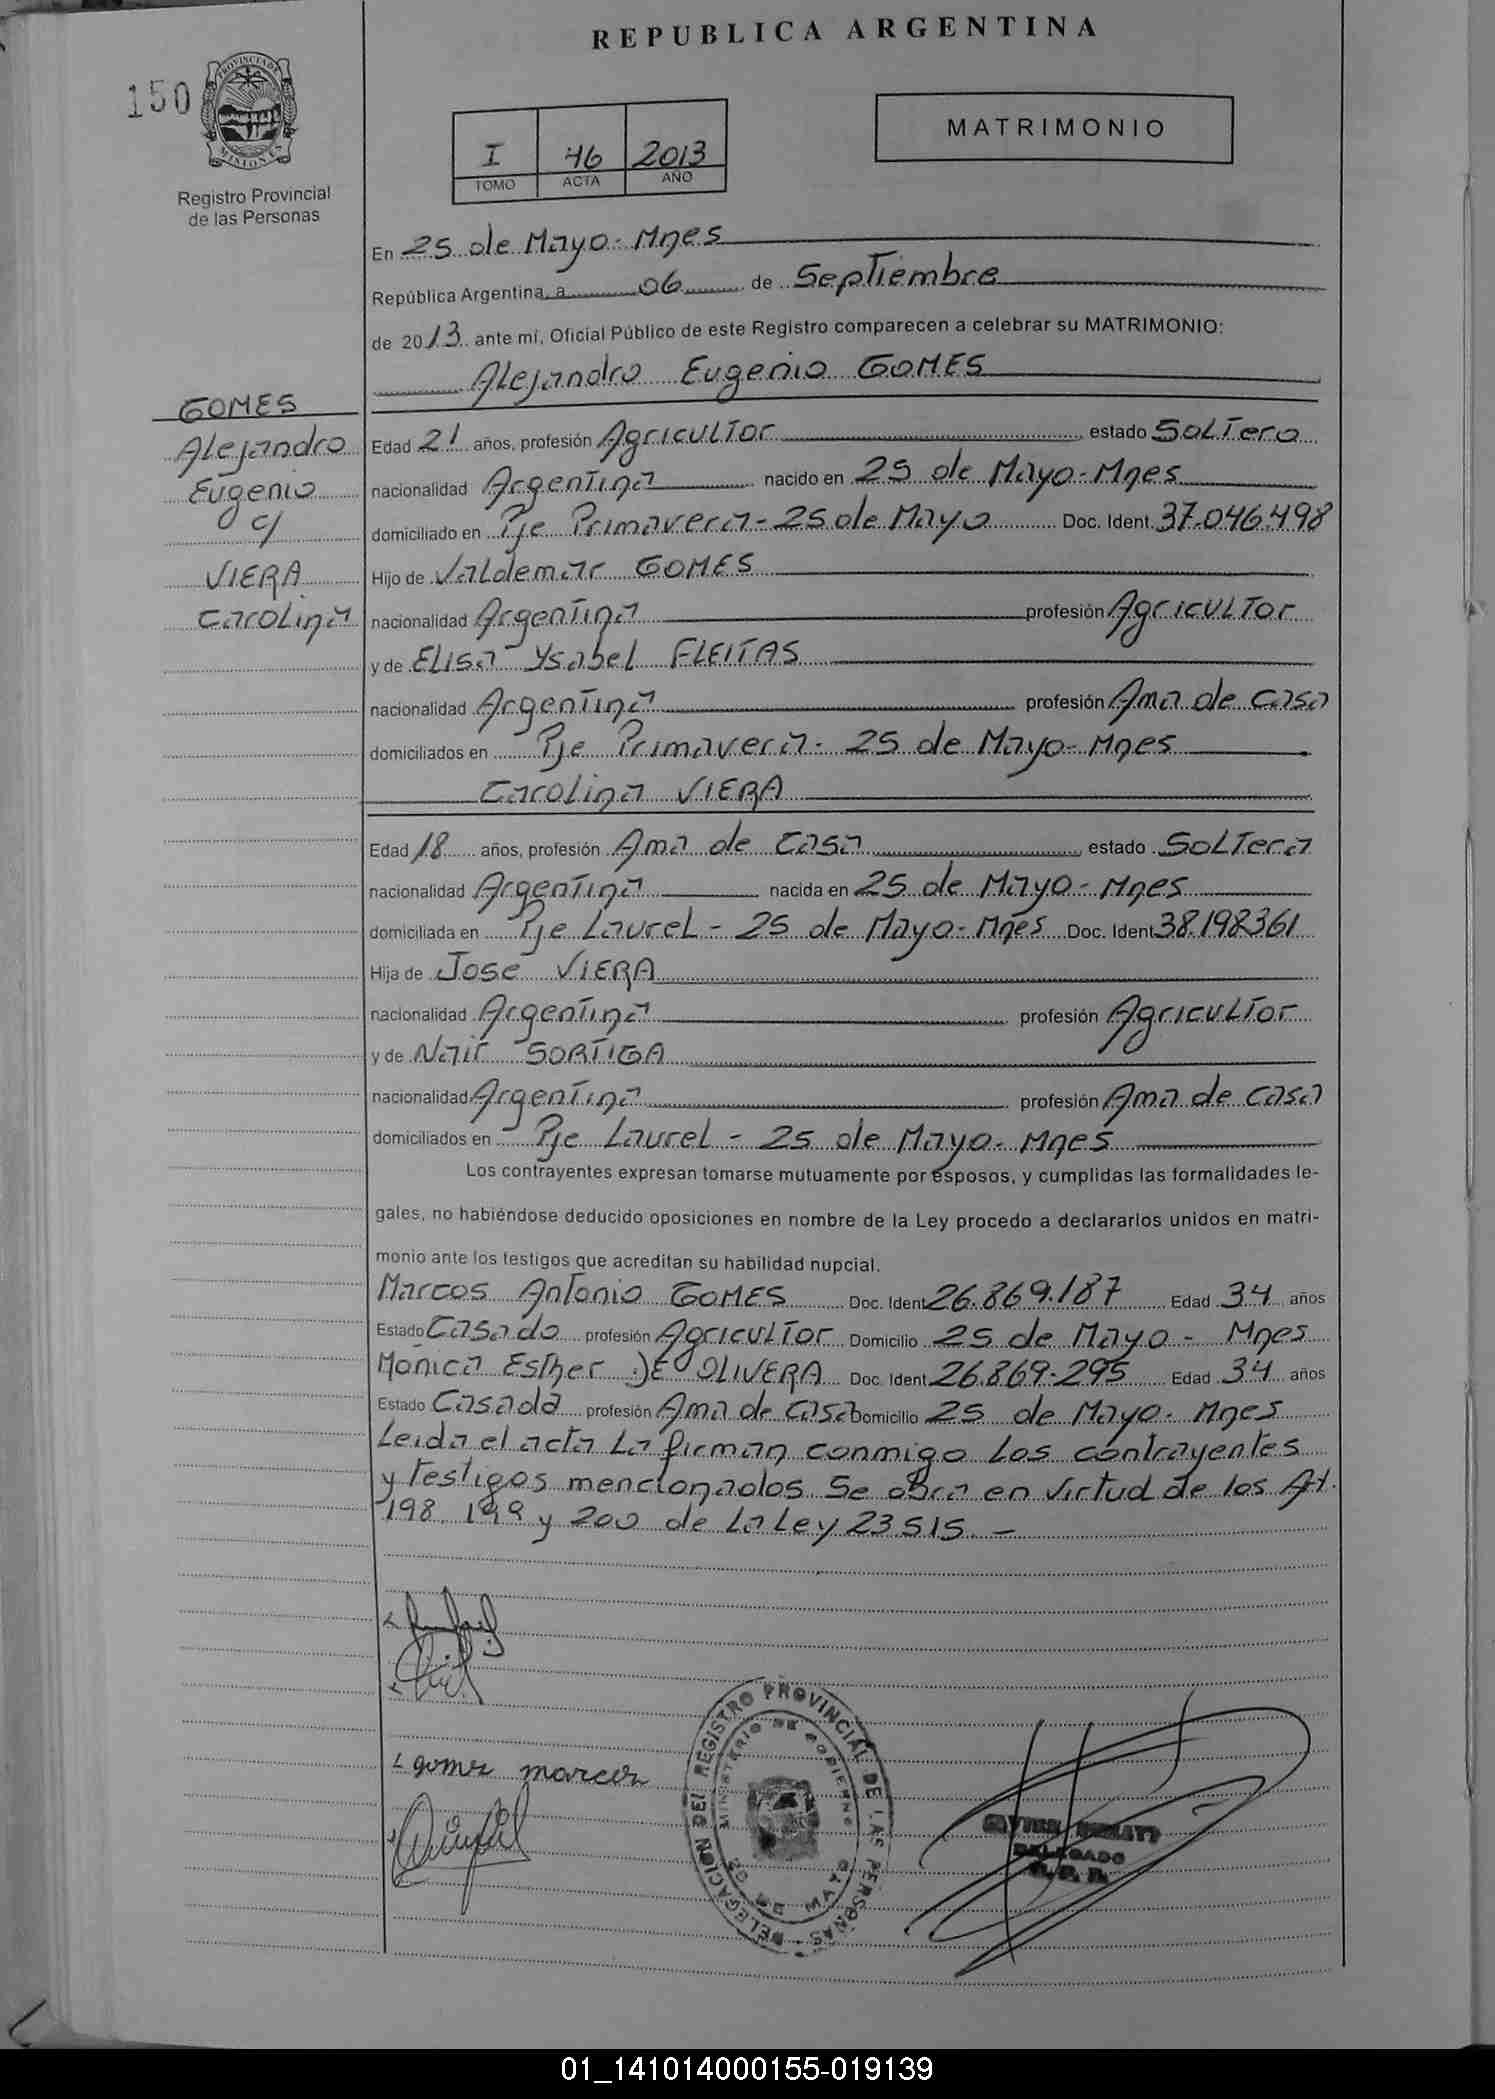 REPUBLICA ARGENTINA
150
PROVINCIA DE
MISIONES
Registro Provincial
de las Personas
I 46 2013
TOMO ACTA AÑO
MATRIMONIO
En 25 de Mayo - Mnes
República Argentina, a 06 de Septiembre
de 2013 ante mí, Oficial Público de este Registro comparecen a celebrar su MATRIMONIO:
Alejandro Eugenio GOMES
GOMES
Alejandro
Eugenio
c/
VIERA
Carolina
Edad 21 años, profesión Agricultor estado Soltero
nacionalidad Argentina nacido en 25 de Mayo - Mnes
domiciliado en Pje Primavera - 25 de Mayo Doc. Ident. 37.046.498
Hijo de Valdemar GOMES
nacionalidad Argentina profesión Agricultor
y de Elisa Ysabel FLEITAS
nacionalidad Argentina profesión Ama de casa
domiciliados en Pje Primavera - 25 de Mayo - Mnes
Carolina VIERA
Edad 18 años, profesión Ama de Casa estado Soltera
nacionalidad Argentina nacida en 25 de Mayo - Mnes
domiciliada en Pje Laurel - 25 de Mayo - Mnes Doc. Ident 38.198361
Hija de Jose VIERA
nacionalidad Argentina profesión Agricultor
y de Nair SORTIGA
nacionalidad Argentina profesión Ama de casa
domiciliados en Pje Laurel - 25 de Mayo - Mnes
Los contrayentes expresan tomarse mutuamente por esposos, y cumplidas las formalidades le-
gales, no habiéndose deducido oposiciones en nombre de la Ley procedo a declararlos unidos en matri-
monio ante los testigos que acreditan su habilidad nupcial.
Marcos Antonio GOMES Doc. Ident 26.869.187 Edad 34 años
Estado Casado profesión Agricultor Domicilio 25 de Mayo - Mnes
Mónica Esther DE OLIVERA Doc. Ident 26.869.295 Edad 34 años
Estado Casada profesión Ama de Casa Domicilio 25 de Mayo - Mnes
Leida el acta La firman conmigo los contrayentes
y testigos mencionados. Se obra en virtud de los Art.
198, 199 y 200 de la Ley 23.515. -
gomez marcos
DELEGACION DEL REGISTRO PROVINCIAL DE LAS PERSONAS
MINISTERIO DE GOBIERNO
25 DE MAYO
DELEGADO
01_141014000155-019139